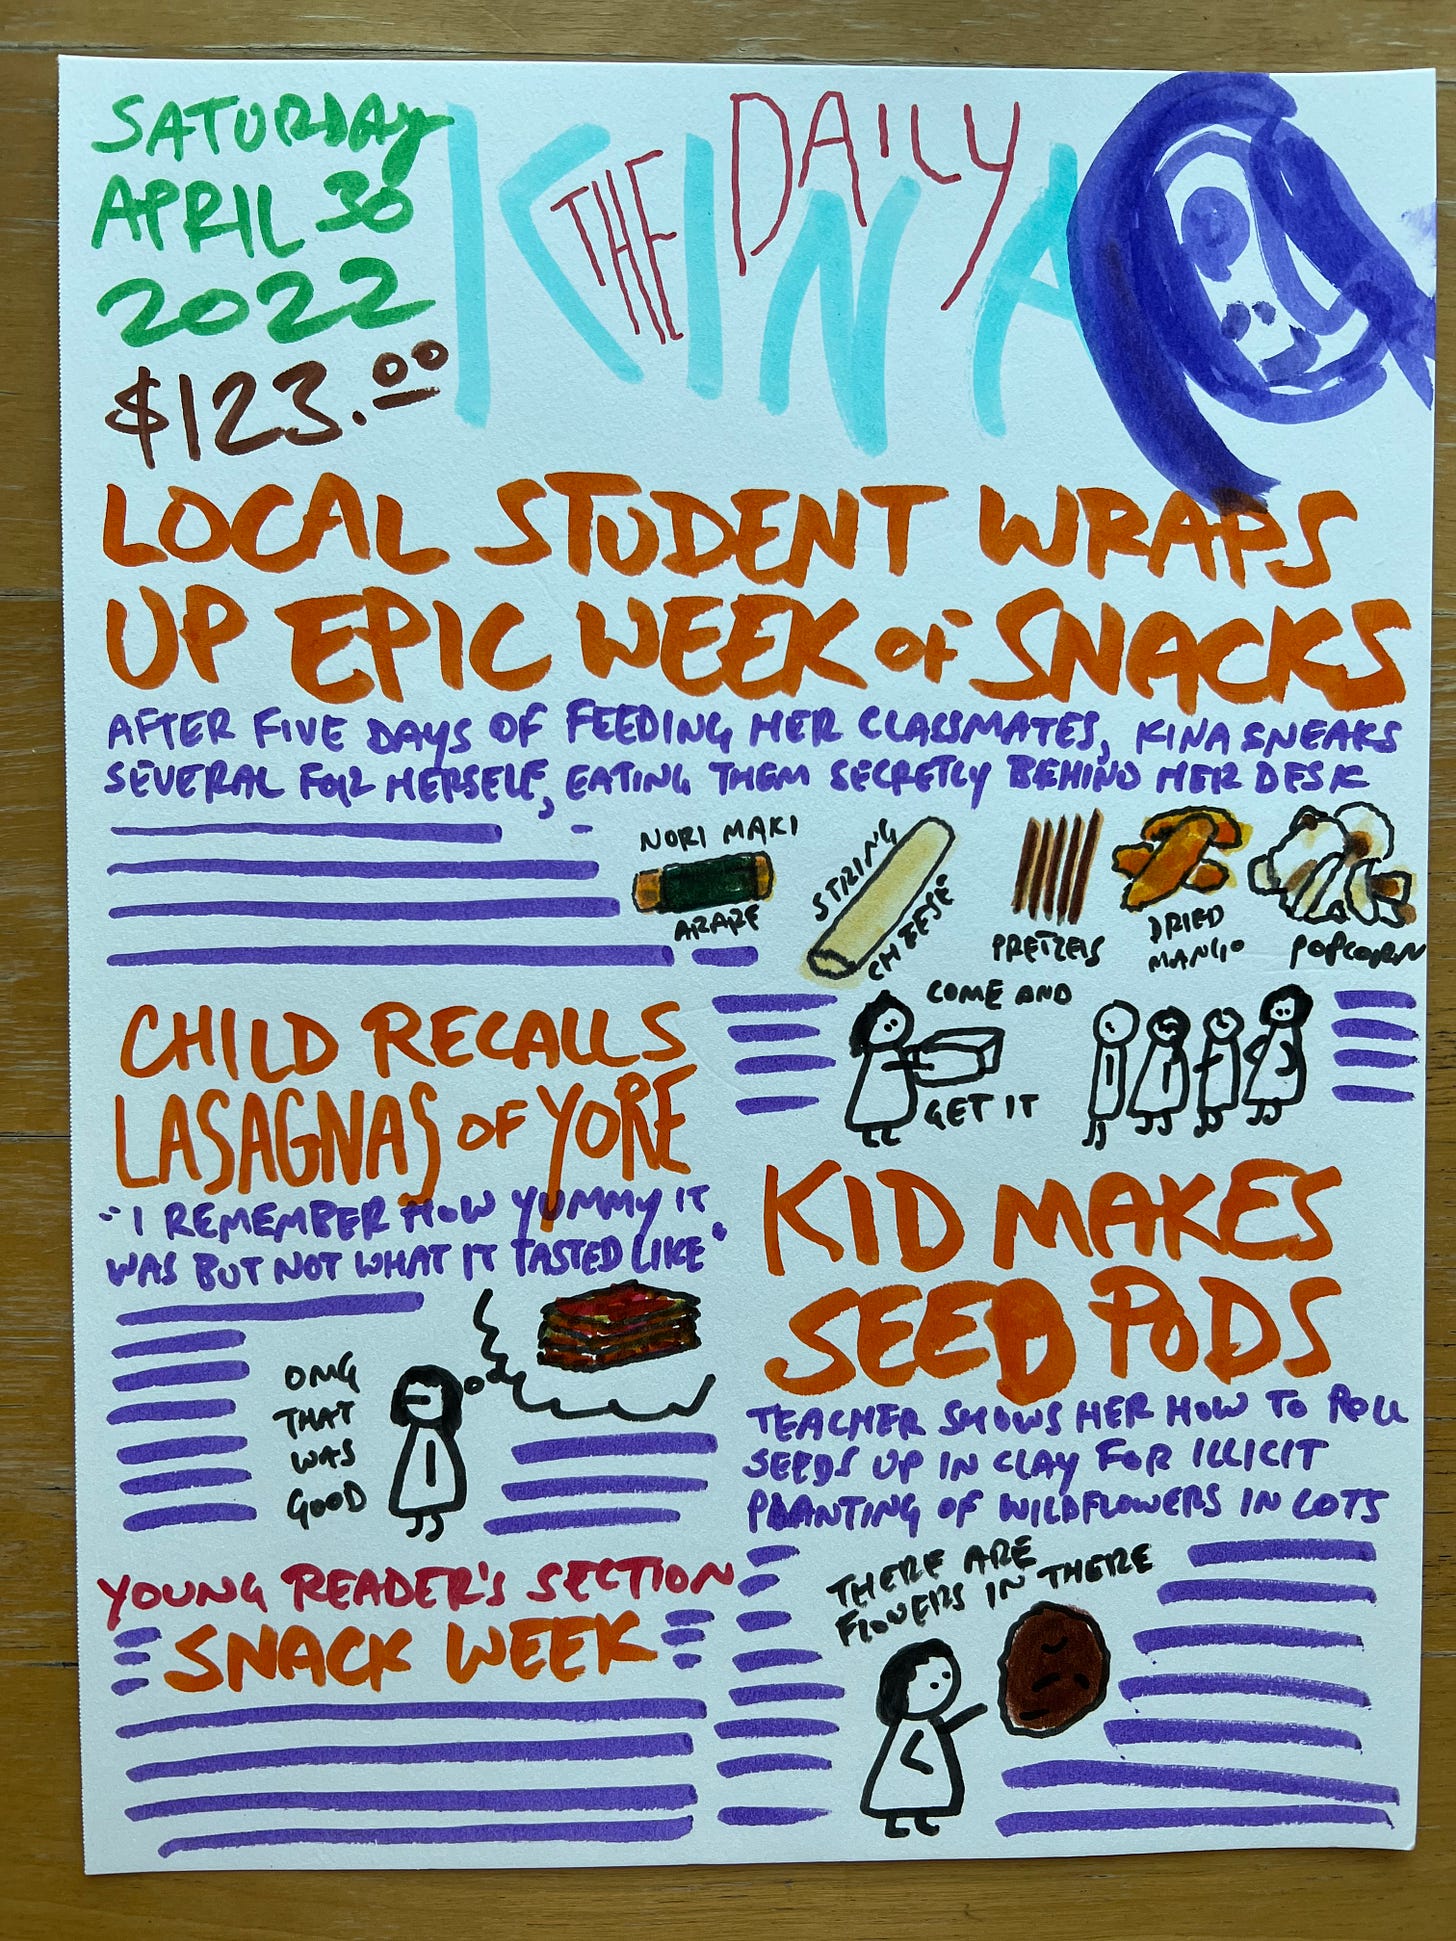 SATURDAY
APRIL 30
2022
$123.00
THE DAILY
KINA
LOCAL STUDENT WRAPS
UP EPIC WEEK OF SNACKS
AFTER FIVE DAYS OF FEEDING HER CLASSMATES, KINA SNEAKS
SEVERAL FOR HERSELF, EATING THEM SECRETLY BEHIND HER DESK
NORI MAKI
ARARE
STRING
CHEESE
PRETZELS
DRIED
MANGO
POPCORN
COME AND
GET IT
CHILD RECALLS
LASAGNAS OF YORE
"I REMEMBER HOW YUMMY IT
WAS BUT NOT WHAT IT TASTED LIKE"
OMG
THAT
WAS
GOOD
KID MAKES
SEED PODS
TEACHER SHOWS HER HOW TO ROLL
SEEDS UP IN CLAY FOR ILLICIT
PLANTING OF WILDFLOWERS IN LOTS
THERE ARE
FLOWERS IN THERE
YOUNG READER'S SECTION
SNACK WEEK